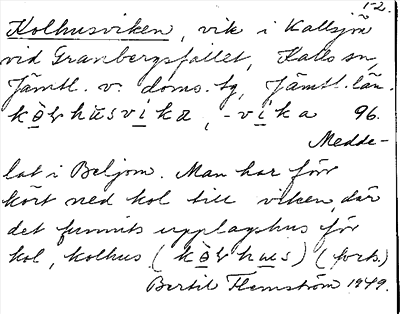 1-2.
Kolhusviken, vik i Kallsjön
vid Granbergsfallet, Kalls sn,
Jämtl. v. doms. tg, Jämtl. län.
-vika 96.
Medde-
lat i Beljom. Man har förr
kört ned kol till viken, där
det funnits upplagshus för
kol, kolhus (forts.)
Bertil Flemström 1949.